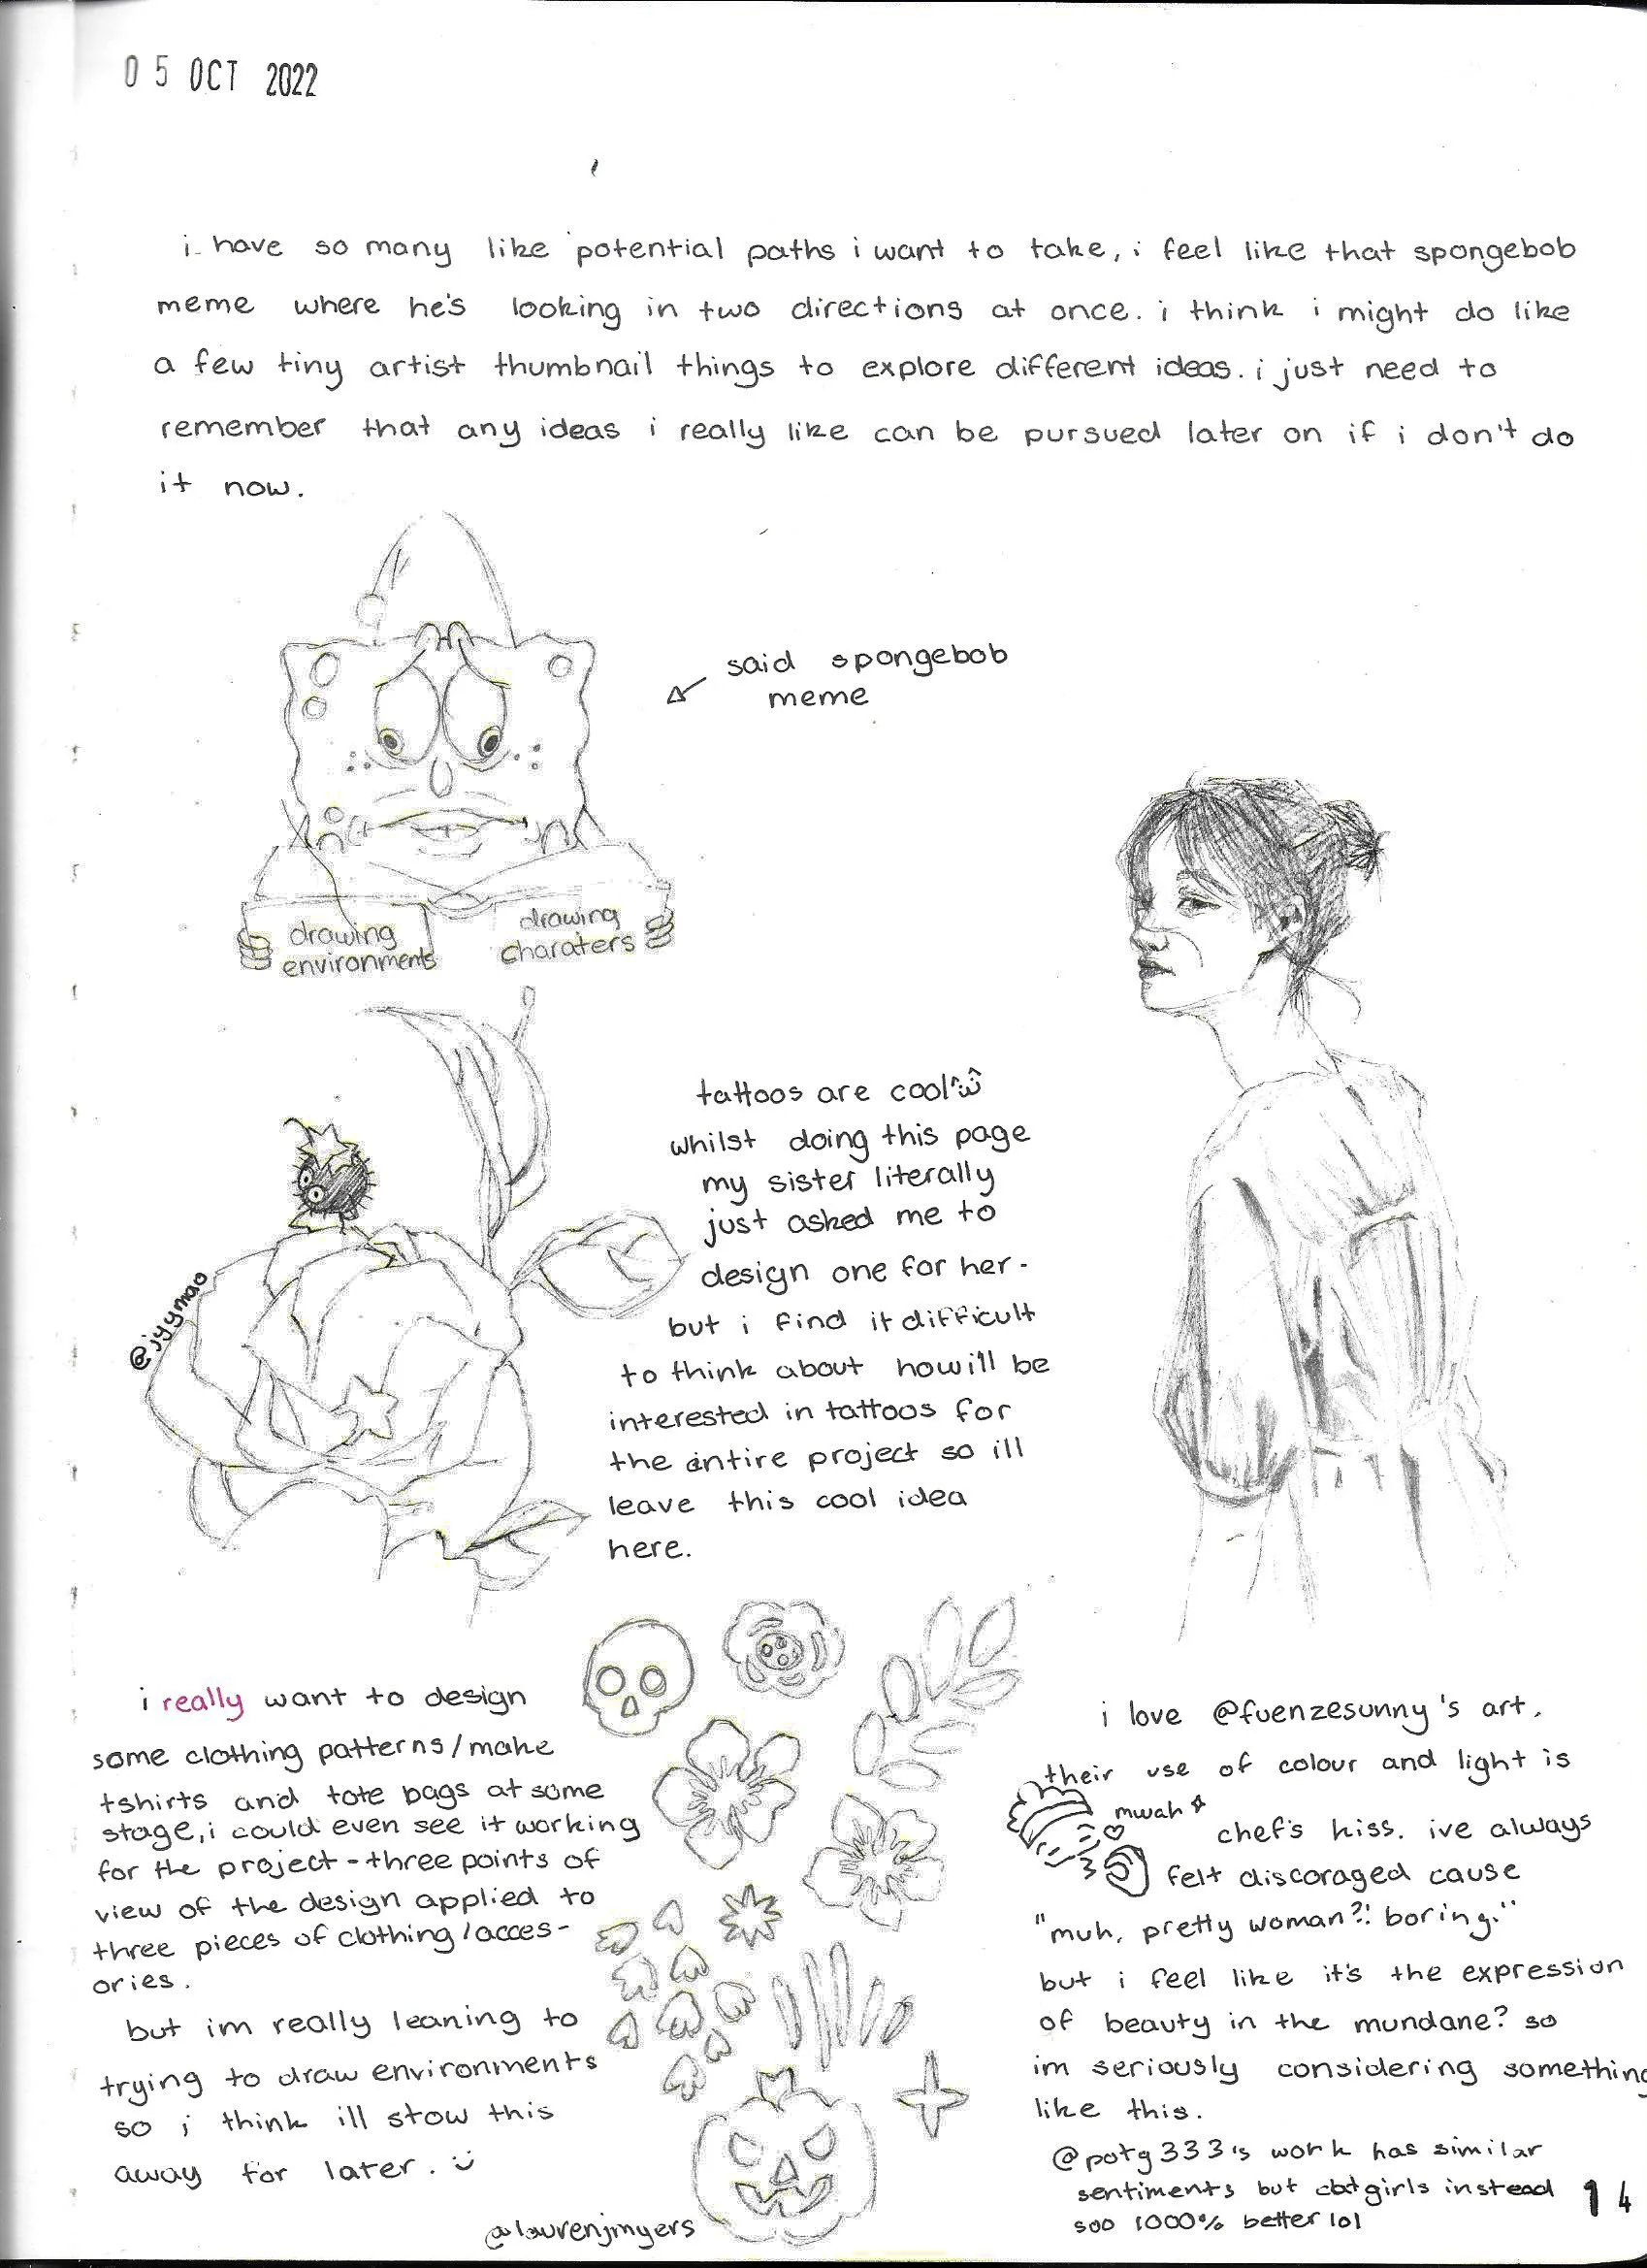 05 OCT 2022
i have so many like potential paths i want to take, i feel like that spongebob
meme where he's looking in two directions at once. i think i might do like
a few tiny artist thumbnail things to explore different ideas. i just need to
remember that any ideas i really like can be pursued later on if i don't do
it now.
said spongebob
meme
drawing
environments
drawing
charaters
@jyymao
tattoos are cool
whilst doing this page
my sister literally
just asked me to
design one for her-
but i find it difficult
to think about how ill be
interested in tattoos for
the entire project so ill
leave this cool idea
here.
i really want to design
some clothing patterns/make
tshirts and tote bags at some
stage, i could even see it working
for the project - three points of
view of the design applied to
three pieces of clothing/acces-
ories.
but im really leaning to
trying to draw environments
so i think ill stow this
away for later. :)
@laurenjmyers
i love @fuenzesunny's art.
their use of colour and light is
mwah
chef's kiss. ive always
felt discoraged cause
"muh, pretty woman?! boring."
but i feel like it's the expression
of beauty in the mundane? so
im seriously considering something
like this.
@potg333's work has similar
sentiments but girls instead
soo 1000% better lol
14